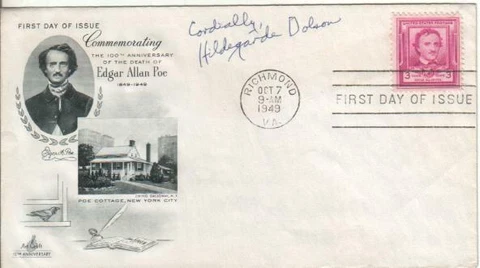 FIRST DAY OF ISSUE
Commemorating
THE 100TH ANNIVERSARY
OF THE DEATH OF
Edgar Allan Poe
1849-1949
Cordially,
Hildegarde Dolson
UNITED STATES POSTAGE
3 3
RICHMOND
OCT 7
9-AM
1949
VA.
FIRST DAY OF ISSUE
Edgar A. Poe
POE COTTAGE, NEW YORK CITY
ArtCraft
ANNIVERSARY